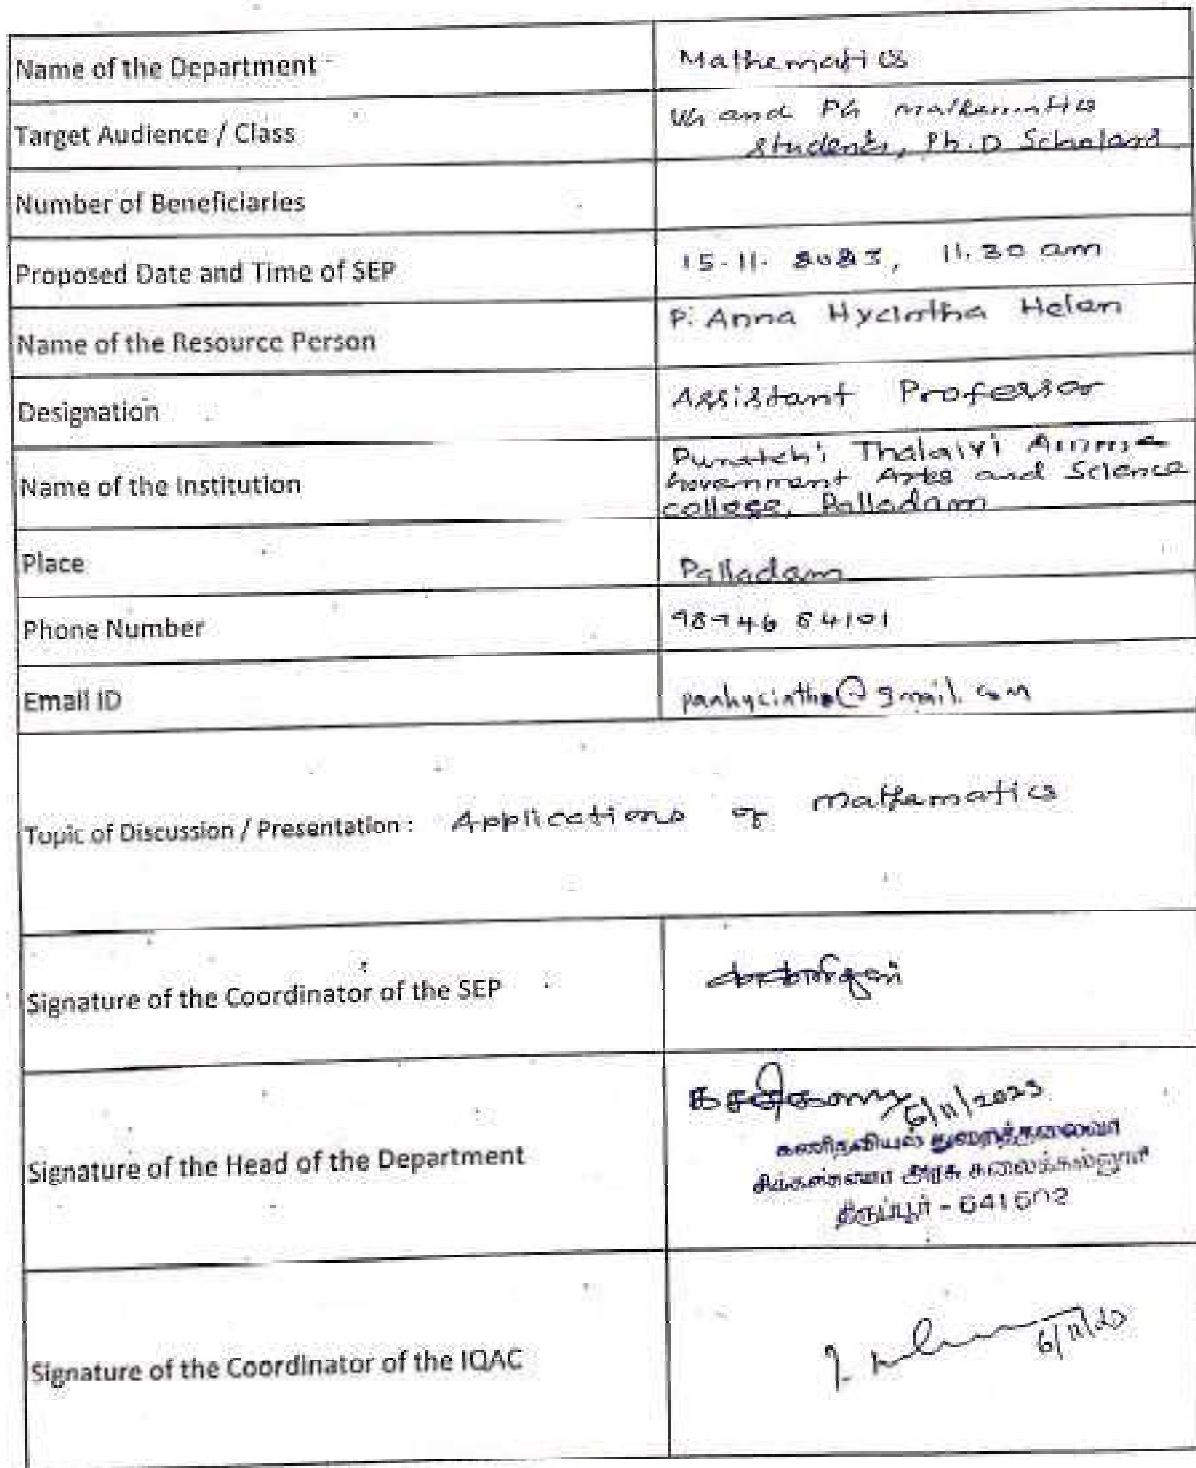 Name of the Department
Mathematics
Target Audience / Class
UG and PG mathematics
students, Ph.D Scholars
Number of Beneficiaries
Proposed Date and Time of SEP
15-11-2023, 11.30 am
Name of the Resource Person
P. Anna Hycintha Helan
Designation
Assistant Professor
Name of the Institution
Puratchi Thalaivi Amma
Government Arts and Science
college, Palladam
Place
Palladam
Phone Number
64101
Email ID
panhycintha@gmail.com
Topic of Discussion / Presentation : Applications of mathematics
Signature of the Coordinator of the SEP
Signature of the Head of the Department
6/11/2023
கணிதவியல் துறைத்தலைவர்
சிக்கண்ணா அரசு கலைக்கல்லூரி
திருப்பூர் - 641602
Signature of the Coordinator of the IQAC
6/11/23